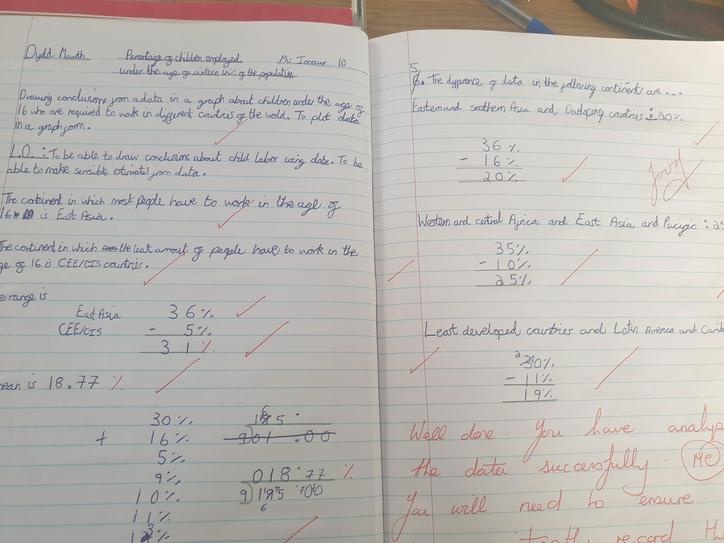 Dydd Mawrth Percentage of children employed 10
under the age of sixteen in % of the population
Drawing conclusions from a data in a graph about children under the age of
16 who are required to work in different coutries of the wold. To plot data
in a graph form.
L.O.: To be able to draw conclusions about child labor using data. To be
able to make sensible estimates from data.
The continent in which most people have to work in the age of
16 is East Asia.
The continent in which the least amout of people have to work in the
age of 16 is CEE/CIS countries.
range is
East Asia 36%
CEE/CIS - 5%
31%
mean is 18.77 %
30%
+ 16%
5%
9%
10%
11%
018.77 %
5.
The difference of data in the following continents are...
Eastern and southern Asia and countries : 20%
36%
- 16%
20%
good
Western and central Africa and East Asia and Pacific :
35%
- 10%
25%
Least developed countries and Latin America and
30%
- 11%
19%
Well done you have
the data successfully. Me
You will need to ensure
record